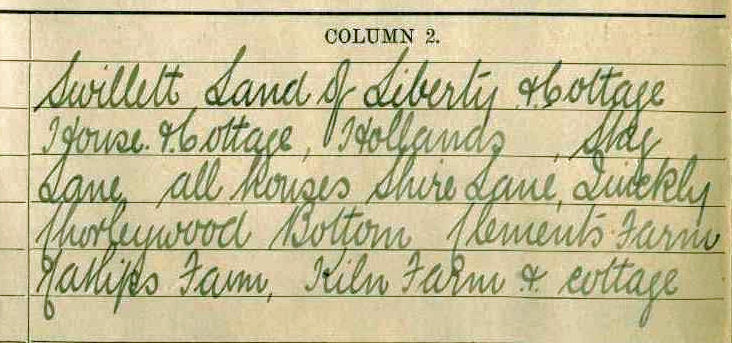 COLUMN 2.
Swillett Land of Liberty & Cottage
House & Cottage, Hollands, Sky
Lane all houses Shire Lane, Quickly
Chorleywood Bottom Clements Farm
Farm, Kiln Farm & cottage